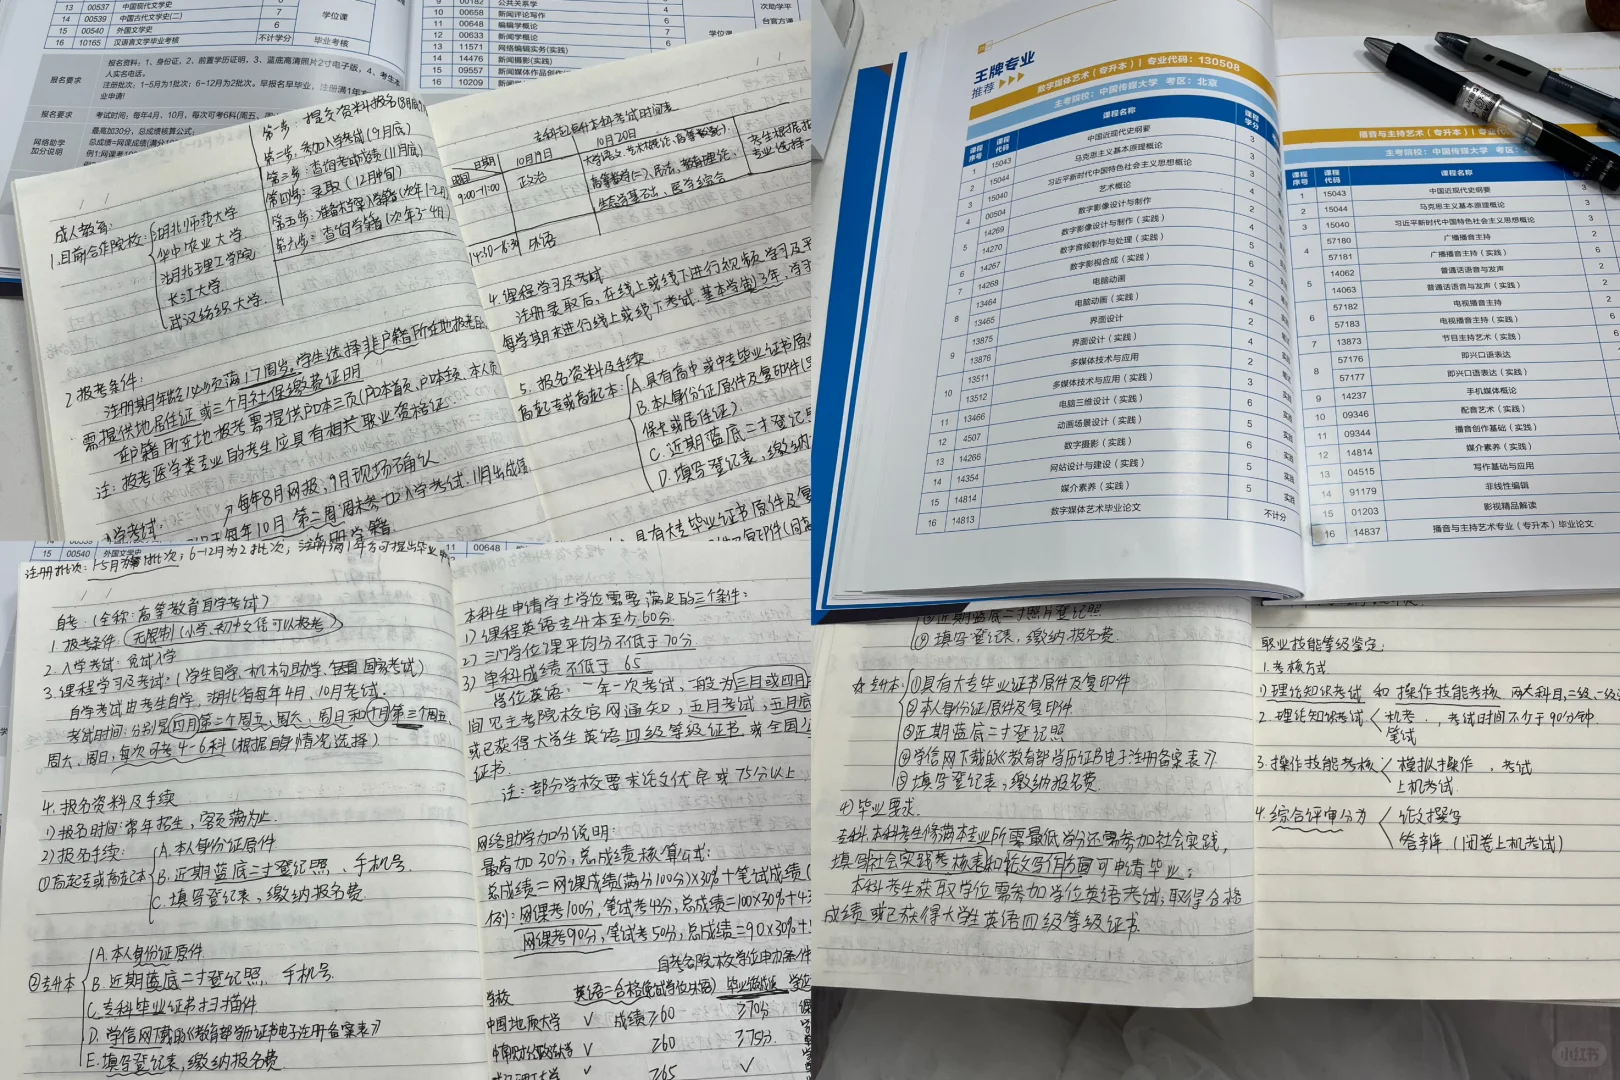 13 00537 中国现代文学史
14 00539 中国古代文学史(二) 7
15 00540 外国文学史 6 学位课
16 10165 汉语言文学毕业考核 不计学分 毕业考核
报名要求
报名资料:1、身份证,2、前置学历证明,3、蓝底高清照片2寸电子版,4、考生本
人实名电话。
注册批次:1~5月为1批次:6~12月为2批次。早报名早毕业,注册满1年
业申请!
报名要求 考试时间:每年4月、10月,每次可考6科(周五、
网络助学
加分说明
最高加30分,总成绩核算公式:
9 00182 公共关系学
10 00658 新闻评论写作 4
11 00648 编辑学概论 6
12 00633 新闻学概论 7
13 11571 网络编辑实务(实践)
14 14476 新闻摄影(实践)
15 09557 新闻媒体作品创作
16 10209
次助学平
台官方课
成人教育:
1.目前合作院校:湖北师范大学
华中农业大学
湖北理工学院
长江大学
武汉纺织大学.
第一步:提交资料报名(8月
第二步:参加入学考试(9月底)
第三步:查询考试成绩(11月底)
第四步:录取(12月中旬)
第五步:准备
第六步:查询学籍(次年3-4月)
2.报考条件:
注册期年龄 须满17周岁.学生选择非户籍所在地报考
需提供地居住证或三个月社保缴费证明
在户籍所在地报考需提供户口本三页(户口本首页,户口本主页、本人页
注:报考医学类专业的考生应具有相关职业资格证
每年8月网报,9月现场确认
每年10月第二周周末参加入学考试.11月出成绩
注册学籍
专科起点升本科考试时间表
日期 10月19日 10月20日
9:00-11:00 政治 大学语文、艺术概论、高等数学(一)、
高等数学(二)、民法、教育理论、
生态学基础、医学综合
14:30-16:30 外语
考生根据
专业选择
4.课程学习及考试
注册录取后,在线上或线下进行视频学习及
每学期末进行线上或线下考试.基本学制3年,
5.报名资料及手续
高起专或高起本:A.具有高中或中专毕业证书原件及复印件
B.本人身份证原件及复印件
保卡或居住证)
C.近期蓝底二寸登记
D.填写登记表,缴纳
具有大专毕业证书原件及复
王牌专业
推荐
数字媒体艺术(专升本)| 专业代码:130508
主考院校:中国传媒大学 考区:北京
课程序号 课程代码 课程名称 课程学分
1 15043 中国近现代史纲要 3
2 15044 马克思主义基本原理概论 3
3 15040 习近平新时代中国特色社会主义思想概论 3
4 00504 艺术概论 4
5 14269 数字影像设计与制作 2
14270 数字影像设计与制作(实践) 4
6 14267 数字音频制作与处理(实践)
7 14268 数字影视合成(实践)
8 13464 电脑动画 2
13465 电脑动画(实践) 4
9 13875 界面设计 2
13876 界面设计(实践) 4
10 13511 多媒体技术与应用 2
13512 多媒体技术与应用(实践) 3
11 13466 电脑三维设计(实践)
12 4507 动画场景设计(实践) 5
13 14266 数字摄影(实践) 6
14 14354 网站设计与建设(实践) 5
15 14814 媒介素养(实践) 5
16 14813 数字媒体艺术毕业论文 不计分
播音与主持艺术(专升本)| 专业代
主考院校:中国传媒大学 考区:
课程序号 课程代码 课程名称
1 15043 中国近现代史纲要 3
2 15044 马克思主义基本原理概论 3
3 15040 习近平新时代中国特色社会主义思想概论 3
4 57180 广播播音主持 2
57181 广播播音主持(实践) 6
5 14062 普通话语音与发声 2
14063 普通话语音与发声(实践) 6
6 57182 电视播音主持 2
57183 电视播音主持(实践) 6
7 13873 节目主持艺术(实践) 6
8 57176 即兴口语表达
57177 即兴口语表达(实践)
9 14237 手机媒体概论
10 09346 配音艺术(实践)
11 09344 播音创作基础(实践)
12 14814 媒介素养(实践)
13 04515 写作基础与应用
14 91179 非线性编辑
15 01203 影视精品解读
16 14837 播音与主持艺术专业(专升本)毕业论文
15 00540 外国文学史
11 00648
注册批次:1-5月为第1批次;6-12月为2批次,注册满1年方可提出毕业申
自考:(全称:高等教育自学考试)
1.报考条件:(无限制(小学、初中文化可以报考)
2.入学考试:免试入学
3.课程学习及考试:(学生自学、机构助学、国家考试)
自学考试由考生自学,湖北省每年4月、10月考试.
考试时间:分别是四月第二个周五、周六、周日和十月第三个周五、
周六、周日,每次可考4-6科(根据自身情况选择)
4.报名资料及手续
1)报名时间:常年招生,客额满为止.
2)报名手续:
①高起专或高起本 A.本人身份证原件
B.近期蓝底二寸登记照、手机号.
C.填写登记表,缴纳报名费
②专升本 A.本人身份证原件
B.近期蓝底二寸登记照、手机号.
C.专科毕业证书扫描件
D.学信网下载的《教育部学历证书电子注册备案表》
E.填写登记表,缴纳报名费.
本科生申请学士学位需要满足的三个条件:
1)课程英语专升本至少60分.
2)三门学位课平均分不低于70分
3)单科成绩不低于65
学位英语:一年一次考试,一般为三月或四月
间见主考院校官网通知,五月考试,五月底
或已获得大学生英语四级等级证书或全国
证书.
注:部分学校要求论文优良或75分以上
网络助学加分说明:
最高加30分,总成绩核算公式:
总成绩=网课成绩(满分100分)×30%+笔试成绩
例:网课考100分,笔试考43分,总成绩=100×30%+4
网课考90分,笔试考50分,总成绩=90×30%+
自考各院校学位申办条件
学校 英语二合格(免试学位外语) 毕业 学位
中国地质大学 √ 成绩≥60 ≥70分
中南财经政法大学 √ ≥60 ≥75分
√ ≥65 √
③近期蓝底二寸照片登记照
④填写登记表,缴纳报名费
☆专升本:①具有大专毕业证书原件及复印件
②本人身份证原件及复印件.
③近期蓝底二寸登记照
④学信网下载的《教育部学历证书电子注册备案表》
⑤填写登记表,缴纳报名费.
4)毕业要求.
专科、本科考生修满本专业所需最低学分还需参加社会实践,
填写社会实践考核表和论文写作方面可申请毕业;
本科考生获取学位需参加学位英语考试,取得合格
成绩或已获得大学生英语四级等级证书.
职业技能等级鉴定:
1.考核方式
1)理论知识考试和操作技能考核两大科目,二级、一级
2.理论知识考试 机考、笔试,考试时间不少于90分钟.
3.操作技能考核: 模拟操作、考试
上机考试.
4.综合评审分为 论文撰写
答辩(闭卷上机考试)
小红书